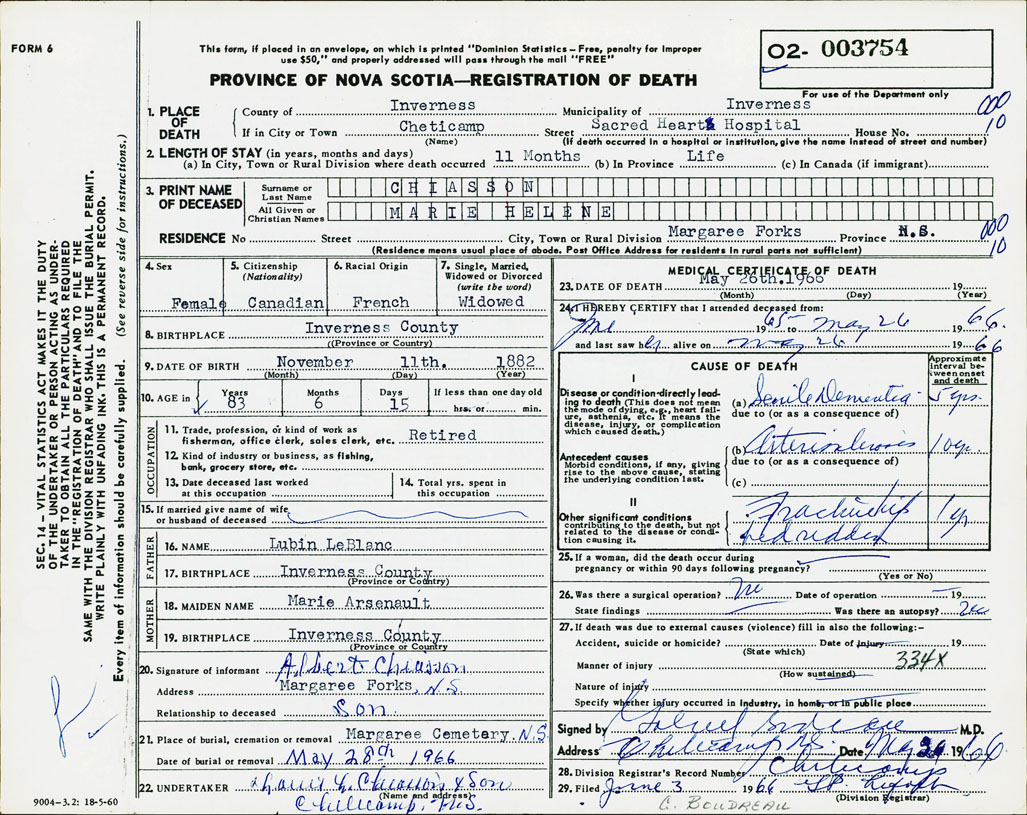 FORM 6
This form, if placed in an envelope, on which is printed "Dominion Statistics – Free, penalty for improper
use $50," and properly addressed will pass through the mail "FREE"
O2- 003754
PROVINCE OF NOVA SCOTIA—REGISTRATION OF DEATH
For use of the Department only
1. PLACE OF DEATH County of Inverness Municipality of Inverness 000
If in City or Town Cheticamp Street Sacred Heart Hospital House No. 10
(Name) (If death occurred in a hospital or institution, give the name instead of street and number)
2. LENGTH OF STAY (in years, months and days)
(a) In City, Town or Rural Division where death occurred 11 Months (b) In Province Life (c) In Canada (if immigrant)
3. PRINT NAME OF DECEASED Surname or Last Name CHIASSON
All Given or Christian Names MARIE HELENE
RESIDENCE No Street City, Town or Rural Division Margaree Forks Province N.S. 000 10
(Residence means usual place of abode. Post Office Address for residents in rural parts not sufficient)
4. Sex Female
5. Citizenship (Nationality) Canadian
6. Racial Origin French
7. Single, Married, Widowed or Divorced (write the word) Widowed
8. BIRTHPLACE Inverness County
((Province or County)
9. DATE OF BIRTH November 11th. 1882
(Month) (Day) (Year)
10. AGE in Years 83 Months 6 Days 15 If less than one day old hrs. or min.
OCCUPATION
11. Trade, profession, or kind of work as fisherman, office clerk, sales clerk, etc. Retired
12. Kind of industry or business, as fishing, bank, grocery store, etc.
13. Date deceased last worked at this occupation
14. Total yrs. spent in this occupation
15. If married give name of wife or husband of deceased
FATHER
16. NAME Lubin LeBlanc
17. BIRTHPLACE Inverness County
(Province or County)
MOTHER
18. MAIDEN NAME Marie Arsenault
19. BIRTHPLACE Inverness County
(Province or County)
20. Signature of informant Albert Chiasson
Address Margaree Forks, N.S.
Relationship to deceased Son
21. Place of burial, cremation or removal Margaree Cemetery N.S
Date of burial or removal May 28th 1966
22. UNDERTAKER Chiasson & Son
(Name and address)
Cheticamp, N.S.
MEDICAL CERTIFICATE OF DEATH
23. DATE OF DEATH May 26th. 1966 19
(Month) (Day) (Year)
24. I HEREBY CERTIFY that I attended deceased from:
June 1965 to May 26 1966.
and last saw her alive on May 26 1966
CAUSE OF DEATH
Approximate interval between onset and death
I
Disease or condition directly leading to death (This does not mean the mode of dying, e.g., heart failure, asthenia, etc. It means the disease, injury, or complication which caused death.)
(a) Senile Dementia 5 yrs.
due to (or as a consequence of)
Antecedent causes
Morbid conditions, if any, giving rise to the above cause, stating the underlying condition last.
(b) Arteriosclerosis 10 yrs
due to (or as a consequence of)
(c)
II
Other significant conditions contributing to the death, but not related to the disease or condition causing it.
Fractured hip 1 yr
bedridden
25. If a woman, did the death occur during pregnancy or within 90 days following pregnancy?
(Yes or No)
26. Was there a surgical operation? No Date of operation 19
State findings Was there an autopsy?
27. If death was due to external causes (violence) fill in also the following:–
Accident, suicide or homicide? Date of injury 19
(State which)
334X
Manner of injury
(How sustained)
Nature of injury
Specify whether injury occurred in Industry, in home, or in public place
Signed by M.D.
Address Cheticamp N.S. Date May 26 1966
28. Division Registrar's Record Number Cheticamp
29. Filed June 3 1966 St. Joseph
(Division Registrar)
C. BOUDREAU
SEC. 14 – VITAL STATISTICS ACT MAKES IT THE DUTY
OF THE UNDERTAKER OR PERSON ACTING AS UNDER-
TAKER TO OBTAIN ALL THE PARTICULARS REQUIRED
IN THE "REGISTRATION OF DEATH" AND TO FILE THE
SAME WITH THE DIVISION REGISTRAR WHO SHALL ISSUE THE BURIAL PERMIT.
WRITE PLAINLY WITH UNFADING INK. THIS IS A PERMANENT RECORD.
Every item of information should be carefully supplied. (See reverse side for instructions.)
9004-3.2: 18-5-60